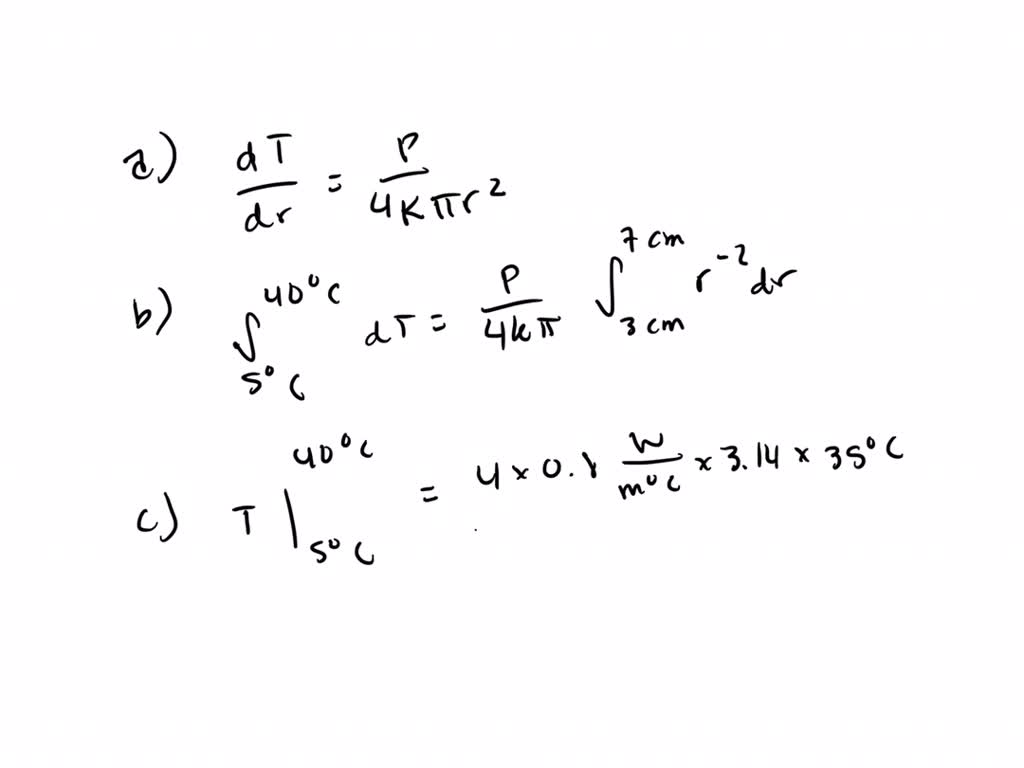 a) dT/dr = P/4kπr²
b) ∫_{5°C}^{40°C} dT = P/4kπ ∫_{3 cm}^{7 cm} r⁻² dr
c) T |_{5°C}^{40°C} = 4 × 0.8 W/m°C × 3.14 × 35°C